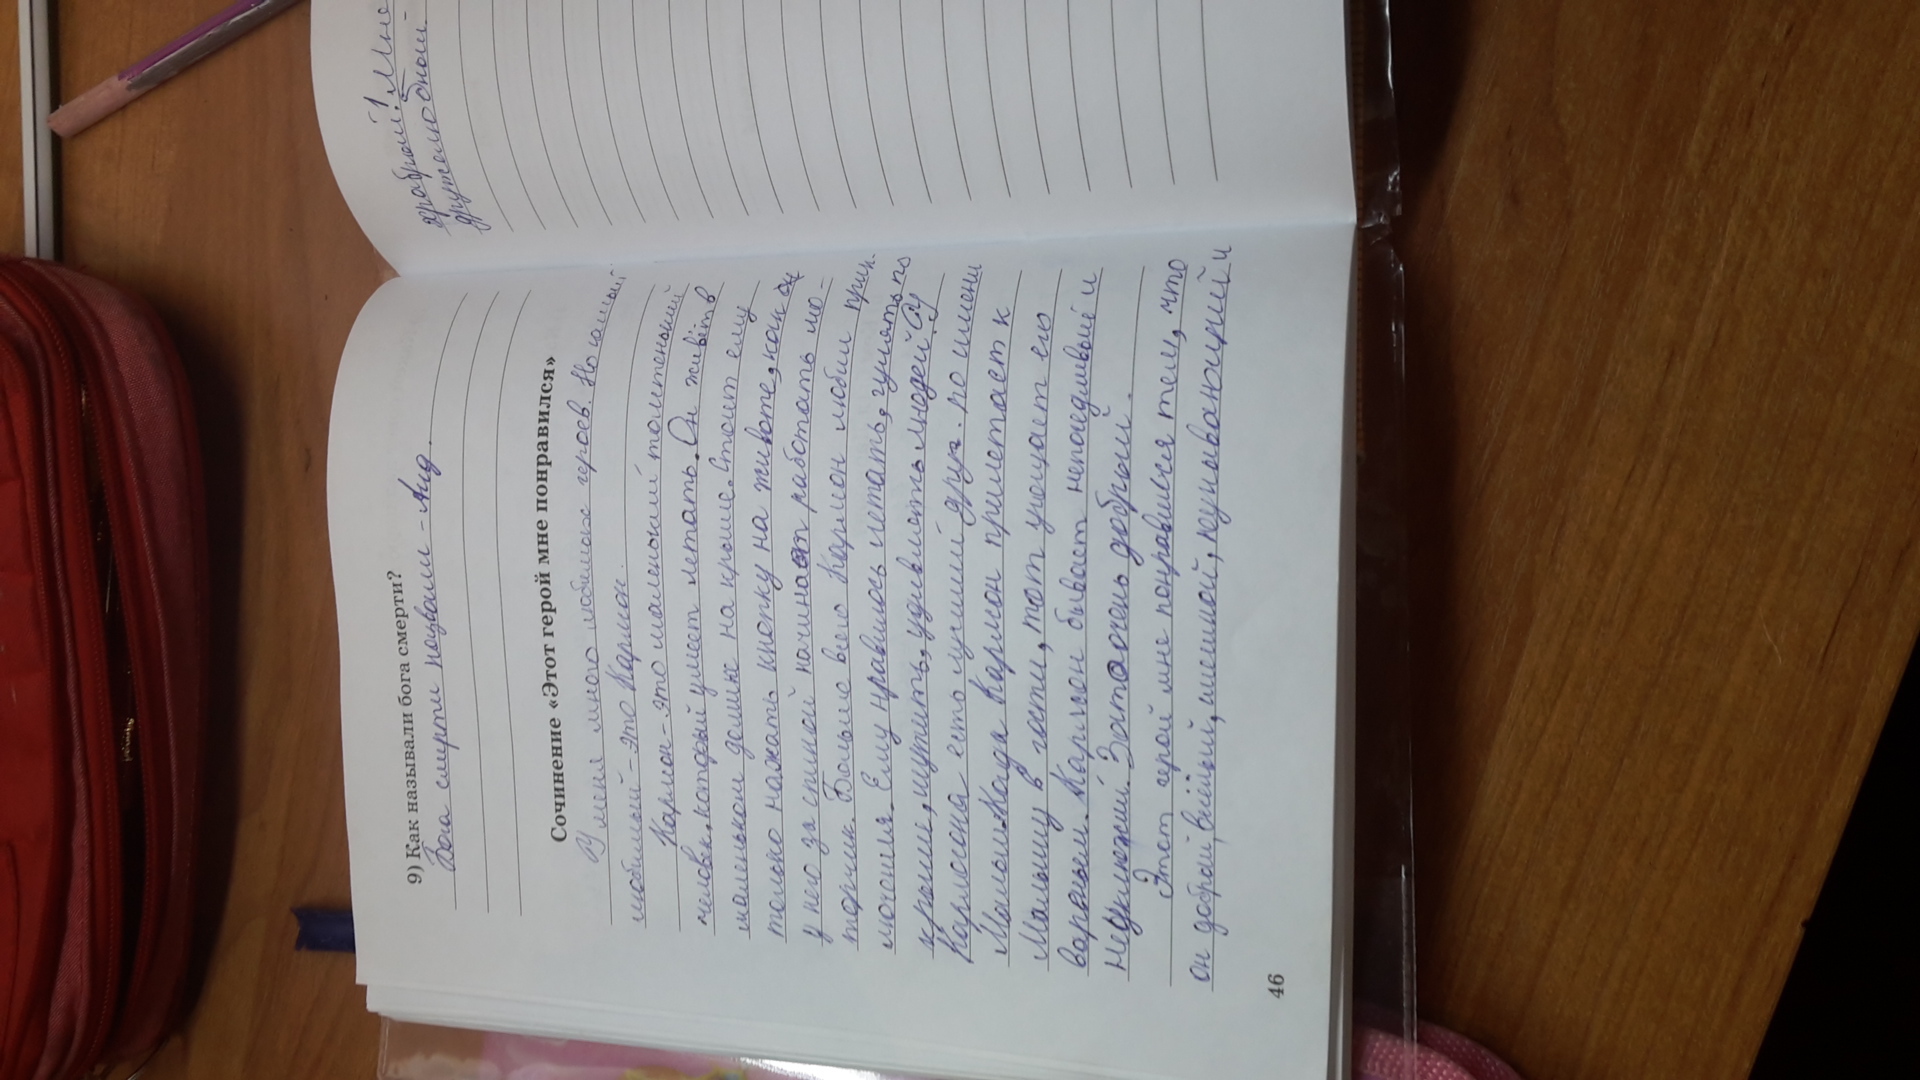 9) Как называли бога смерти?
Бога смерти называли - Аид.
Сочинение «Этот герой мне понравился»
У меня много любимых героев. Но самый
любимый - это Карлсон.
Карлсон - это маленький толстенький
человек, который умеет летать. Он живёт в
маленьком домике на крыше. Стоит ему
только нажать кнопку на животе, как
у него за спиной начинает работать мо-
торчик. Больше всего Карлсон любил
Ему нравилось летать, гулять по
крыше, шутить, удивлять людей. У
Карлсона есть лучший друг по имени
Малыш. Когда Карлсон прилетает к
Малышу в гости, тот угощает его
вареньем. Карлсон бывает непоседливый и
неуклюжий. Зато очень добрый.
Этот герой мне понравился тем, что
он добрый, весёлый, смешной, неунывающий и
46
храбрый!
дружелюбным.